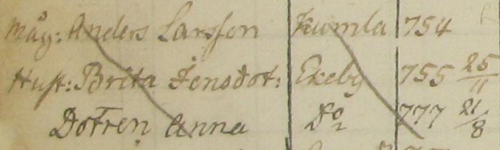 Måg: Anders Larsson Kumla 754
Hust: Brita Jensdot: Ekeby 755 25/11
Dotren Anna Do 777 21/8